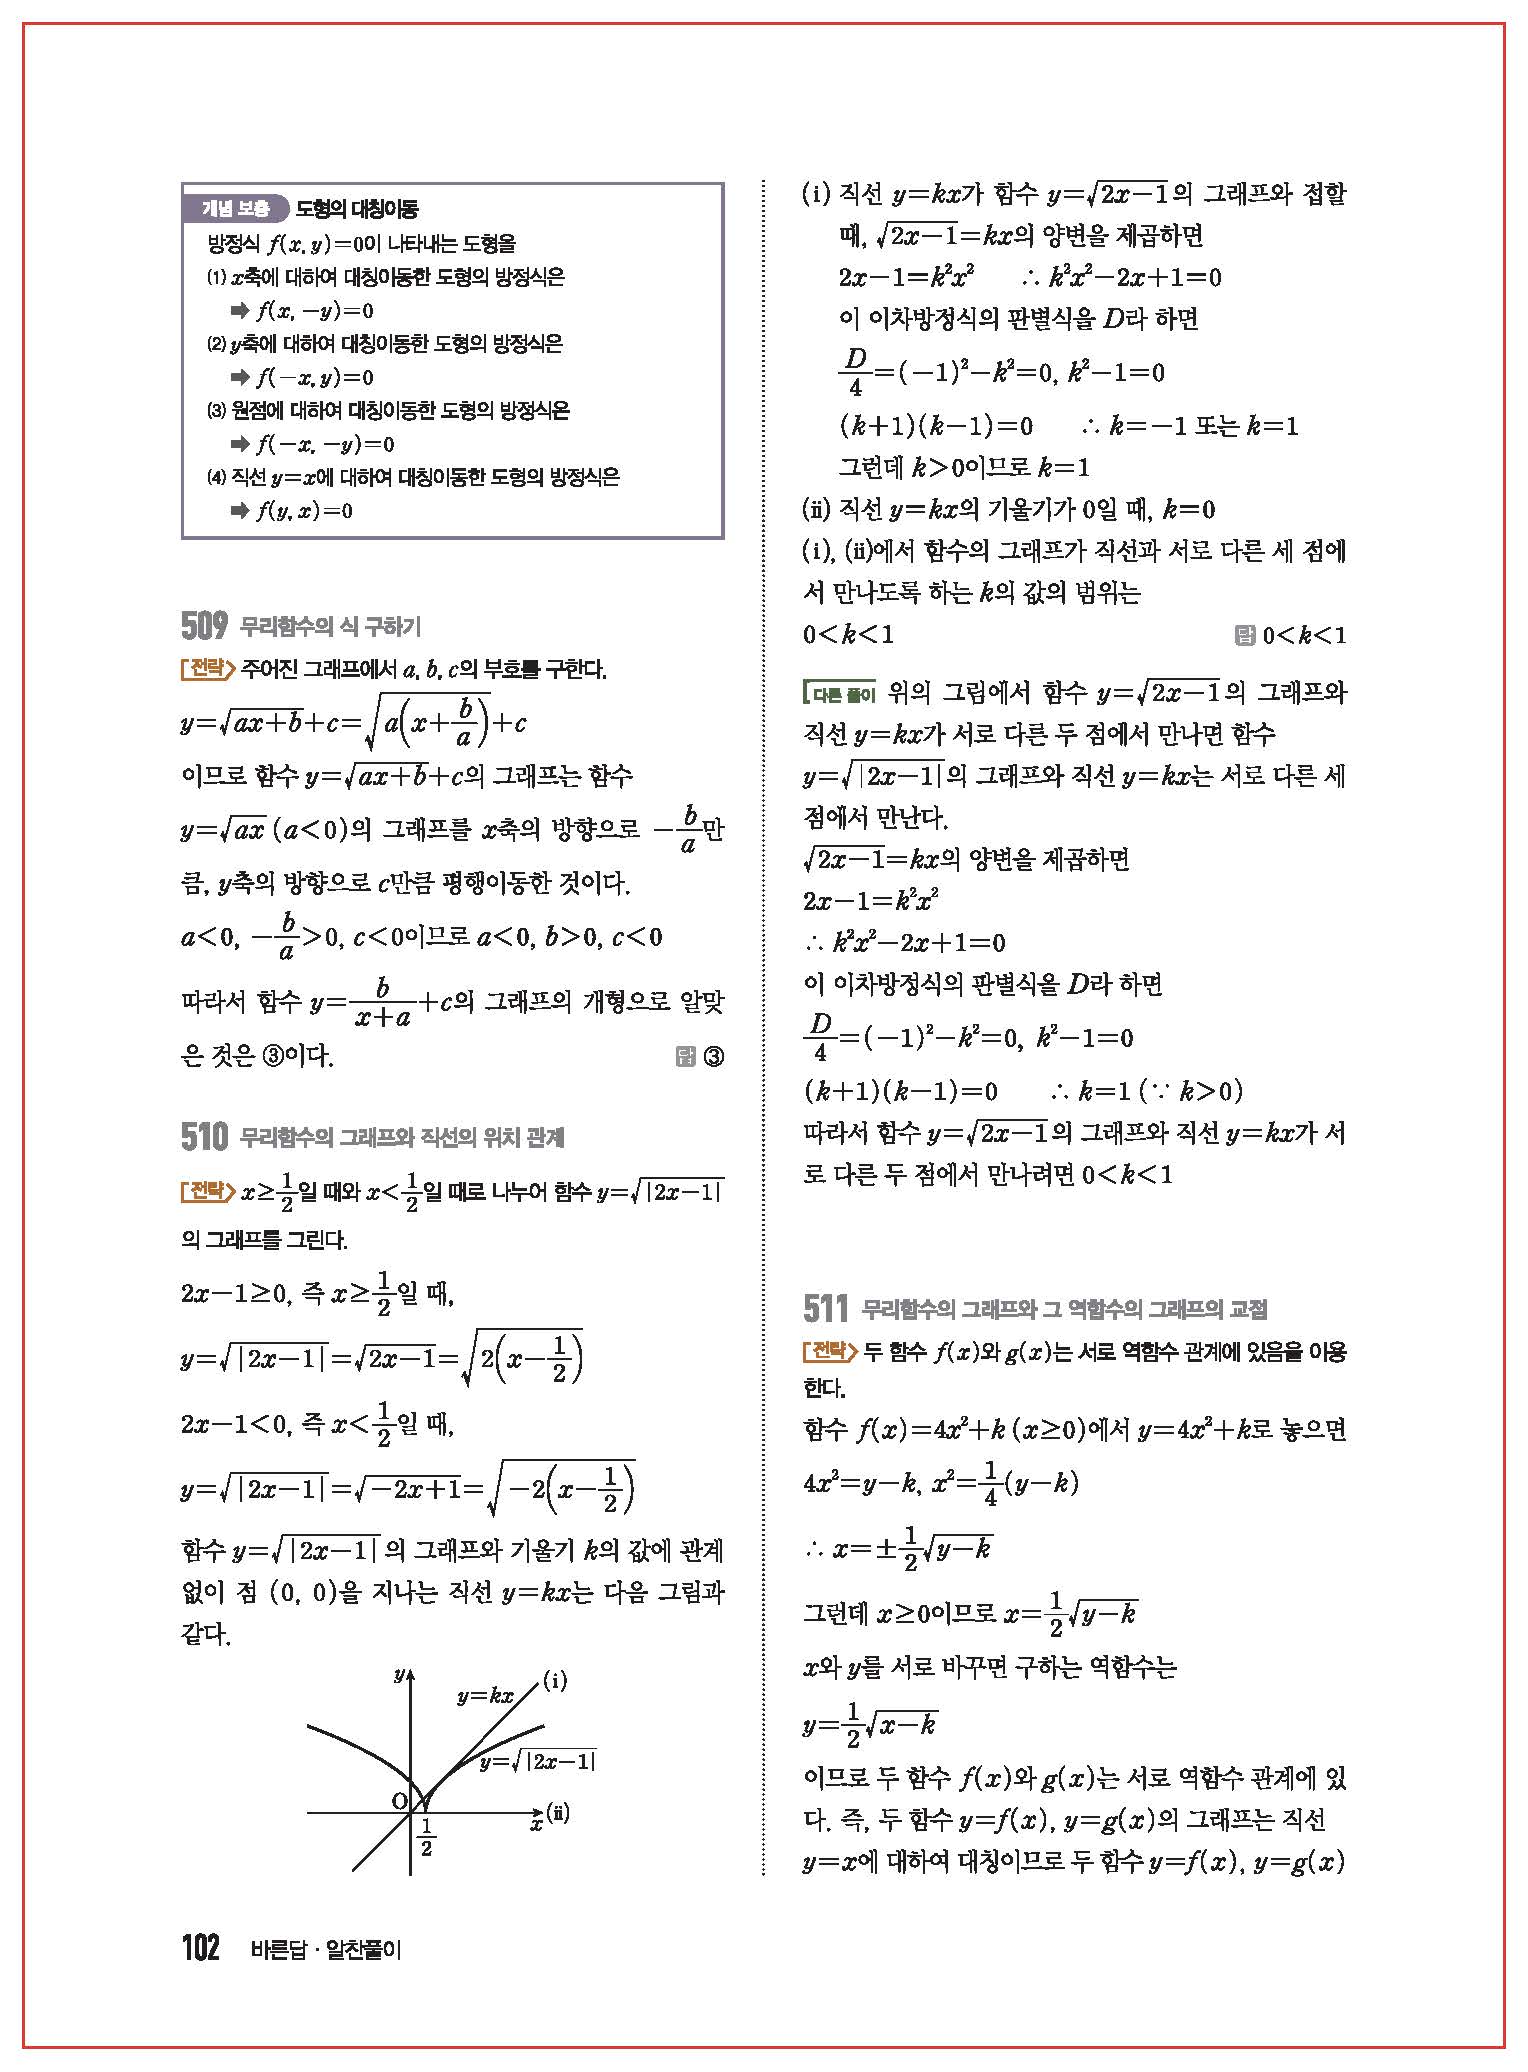 개념 보충 도형의 대칭이동
방정식 f(x, y)=0이 나타내는 도형을
⑴ x축에 대하여 대칭이동한 도형의 방정식은
➡ f(x, -y)=0
⑵ y축에 대하여 대칭이동한 도형의 방정식은
➡ f(-x, y)=0
⑶ 원점에 대하여 대칭이동한 도형의 방정식은
➡ f(-x, -y)=0
⑷ 직선 y=x에 대하여 대칭이동한 도형의 방정식은
➡ f(y, x)=0
509 무리함수의 식 구하기
전략 주어진 그래프에서 a, b, c의 부호를 구한다.
y=√(ax+b)+c=√(a(x+b/a))+c
이므로 함수 y=√(ax+b)+c의 그래프는 함수
y=√(ax) (a<0)의 그래프를 x축의 방향으로 -b/a만
큼, y축의 방향으로 c만큼 평행이동한 것이다.
a<0, -b/a>0, c<0이므로 a<0, b>0, c<0
따라서 함수 y=b/(x+a)+c의 그래프의 개형으로 알맞
은 것은 ③이다. 답 ③
510 무리함수의 그래프와 직선의 위치 관계
전략 x≥1/2일 때와 x<1/2일 때로 나누어 함수 y=√|2x-1|
의 그래프를 그린다.
2x-1≥0, 즉 x≥1/2일 때,
y=√|2x-1|=√(2x-1)=√(2(x-1/2))
2x-1<0, 즉 x<1/2일 때,
y=√|2x-1|=√(-2x+1)=√(-2(x-1/2))
함수 y=√|2x-1|의 그래프와 기울기 k의 값에 관계
없이 점 (0, 0)을 지나는 직선 y=kx는 다음 그림과
같다.
y (i)
y=kx
y=√|2x-1|
O x (ii)
1/2
(i) 직선 y=kx가 함수 y=√(2x-1)의 그래프와 접할
때, √(2x-1)=kx의 양변을 제곱하면
2x-1=k²x² ∴ k²x²-2x+1=0
이 이차방정식의 판별식을 D라 하면
D/4=(-1)²-k²=0, k²-1=0
(k+1)(k-1)=0 ∴ k=-1 또는 k=1
그런데 k>0이므로 k=1
(ii) 직선 y=kx의 기울기가 0일 때, k=0
(i), (ii)에서 함수의 그래프가 직선과 서로 다른 세 점에
서 만나도록 하는 k의 값의 범위는
0<k<1 답 0<k<1
다른 풀이 위의 그림에서 함수 y=√(2x-1)의 그래프와
직선 y=kx가 서로 다른 두 점에서 만나면 함수
y=√|2x-1|의 그래프와 직선 y=kx는 서로 다른 세
점에서 만난다.
√(2x-1)=kx의 양변을 제곱하면
2x-1=k²x²
∴ k²x²-2x+1=0
이 이차방정식의 판별식을 D라 하면
D/4=(-1)²-k²=0, k²-1=0
(k+1)(k-1)=0 ∴ k=1 (∵ k>0)
따라서 함수 y=√(2x-1)의 그래프와 직선 y=kx가 서
로 다른 두 점에서 만나려면 0<k<1
511 무리함수의 그래프와 그 역함수의 그래프의 교점
전략 두 함수 f(x)와 g(x)는 서로 역함수 관계에 있음을 이용
한다.
함수 f(x)=4x²+k (x≥0)에서 y=4x²+k로 놓으면
4x²=y-k, x²=1/4(y-k)
∴ x=±1/2√(y-k)
그런데 x≥0이므로 x=1/2√(y-k)
x와 y를 서로 바꾸면 구하는 역함수는
y=1/2√(x-k)
이므로 두 함수 f(x)와 g(x)는 서로 역함수 관계에 있
다. 즉, 두 함수 y=f(x), y=g(x)의 그래프는 직선
y=x에 대하여 대칭이므로 두 함수 y=f(x), y=g(x)
102 바른답 · 알찬풀이